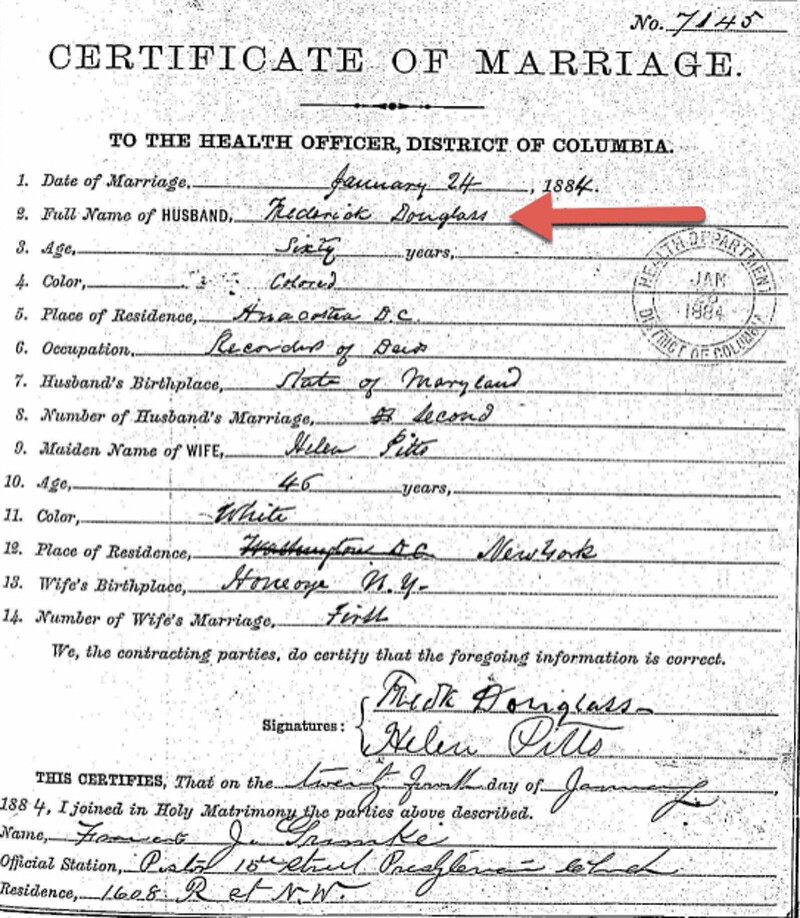 No. 7145
CERTIFICATE OF MARRIAGE.
TO THE HEALTH OFFICER, DISTRICT OF COLUMBIA.
1. Date of Marriage, January 24, 1884.
2. Full Name of HUSBAND, Frederick Douglass
3. Age, Sixty years,
4. Color, Colored
5. Place of Residence, Anacostia D.C.
6. Occupation, Recorder of Deeds
7. Husband's Birthplace, State of Maryland
8. Number of Husband's Marriage, Second
9. Maiden Name of WIFE, Helen Pitts
10. Age, 46 years,
11. Color, White
12. Place of Residence, Washington D.C. New York
13. Wife's Birthplace, Honeoye N.Y.
14. Number of Wife's Marriage, First
HEALTH DEPARTMENT
JAN
1884
DISTRICT OF COLUMBIA
We, the contracting parties, do certify that the foregoing information is correct.
Signatures: Fredk Douglass
Helen Pitts
THIS CERTIFIES, That on the twenty fourth day of January,
1884, I joined in Holy Matrimony the parties above described.
Name, Francis J. Grimke
Official Station, Pastor 15th Street Presbyterian Church
Residence, 1608 R St N.W.